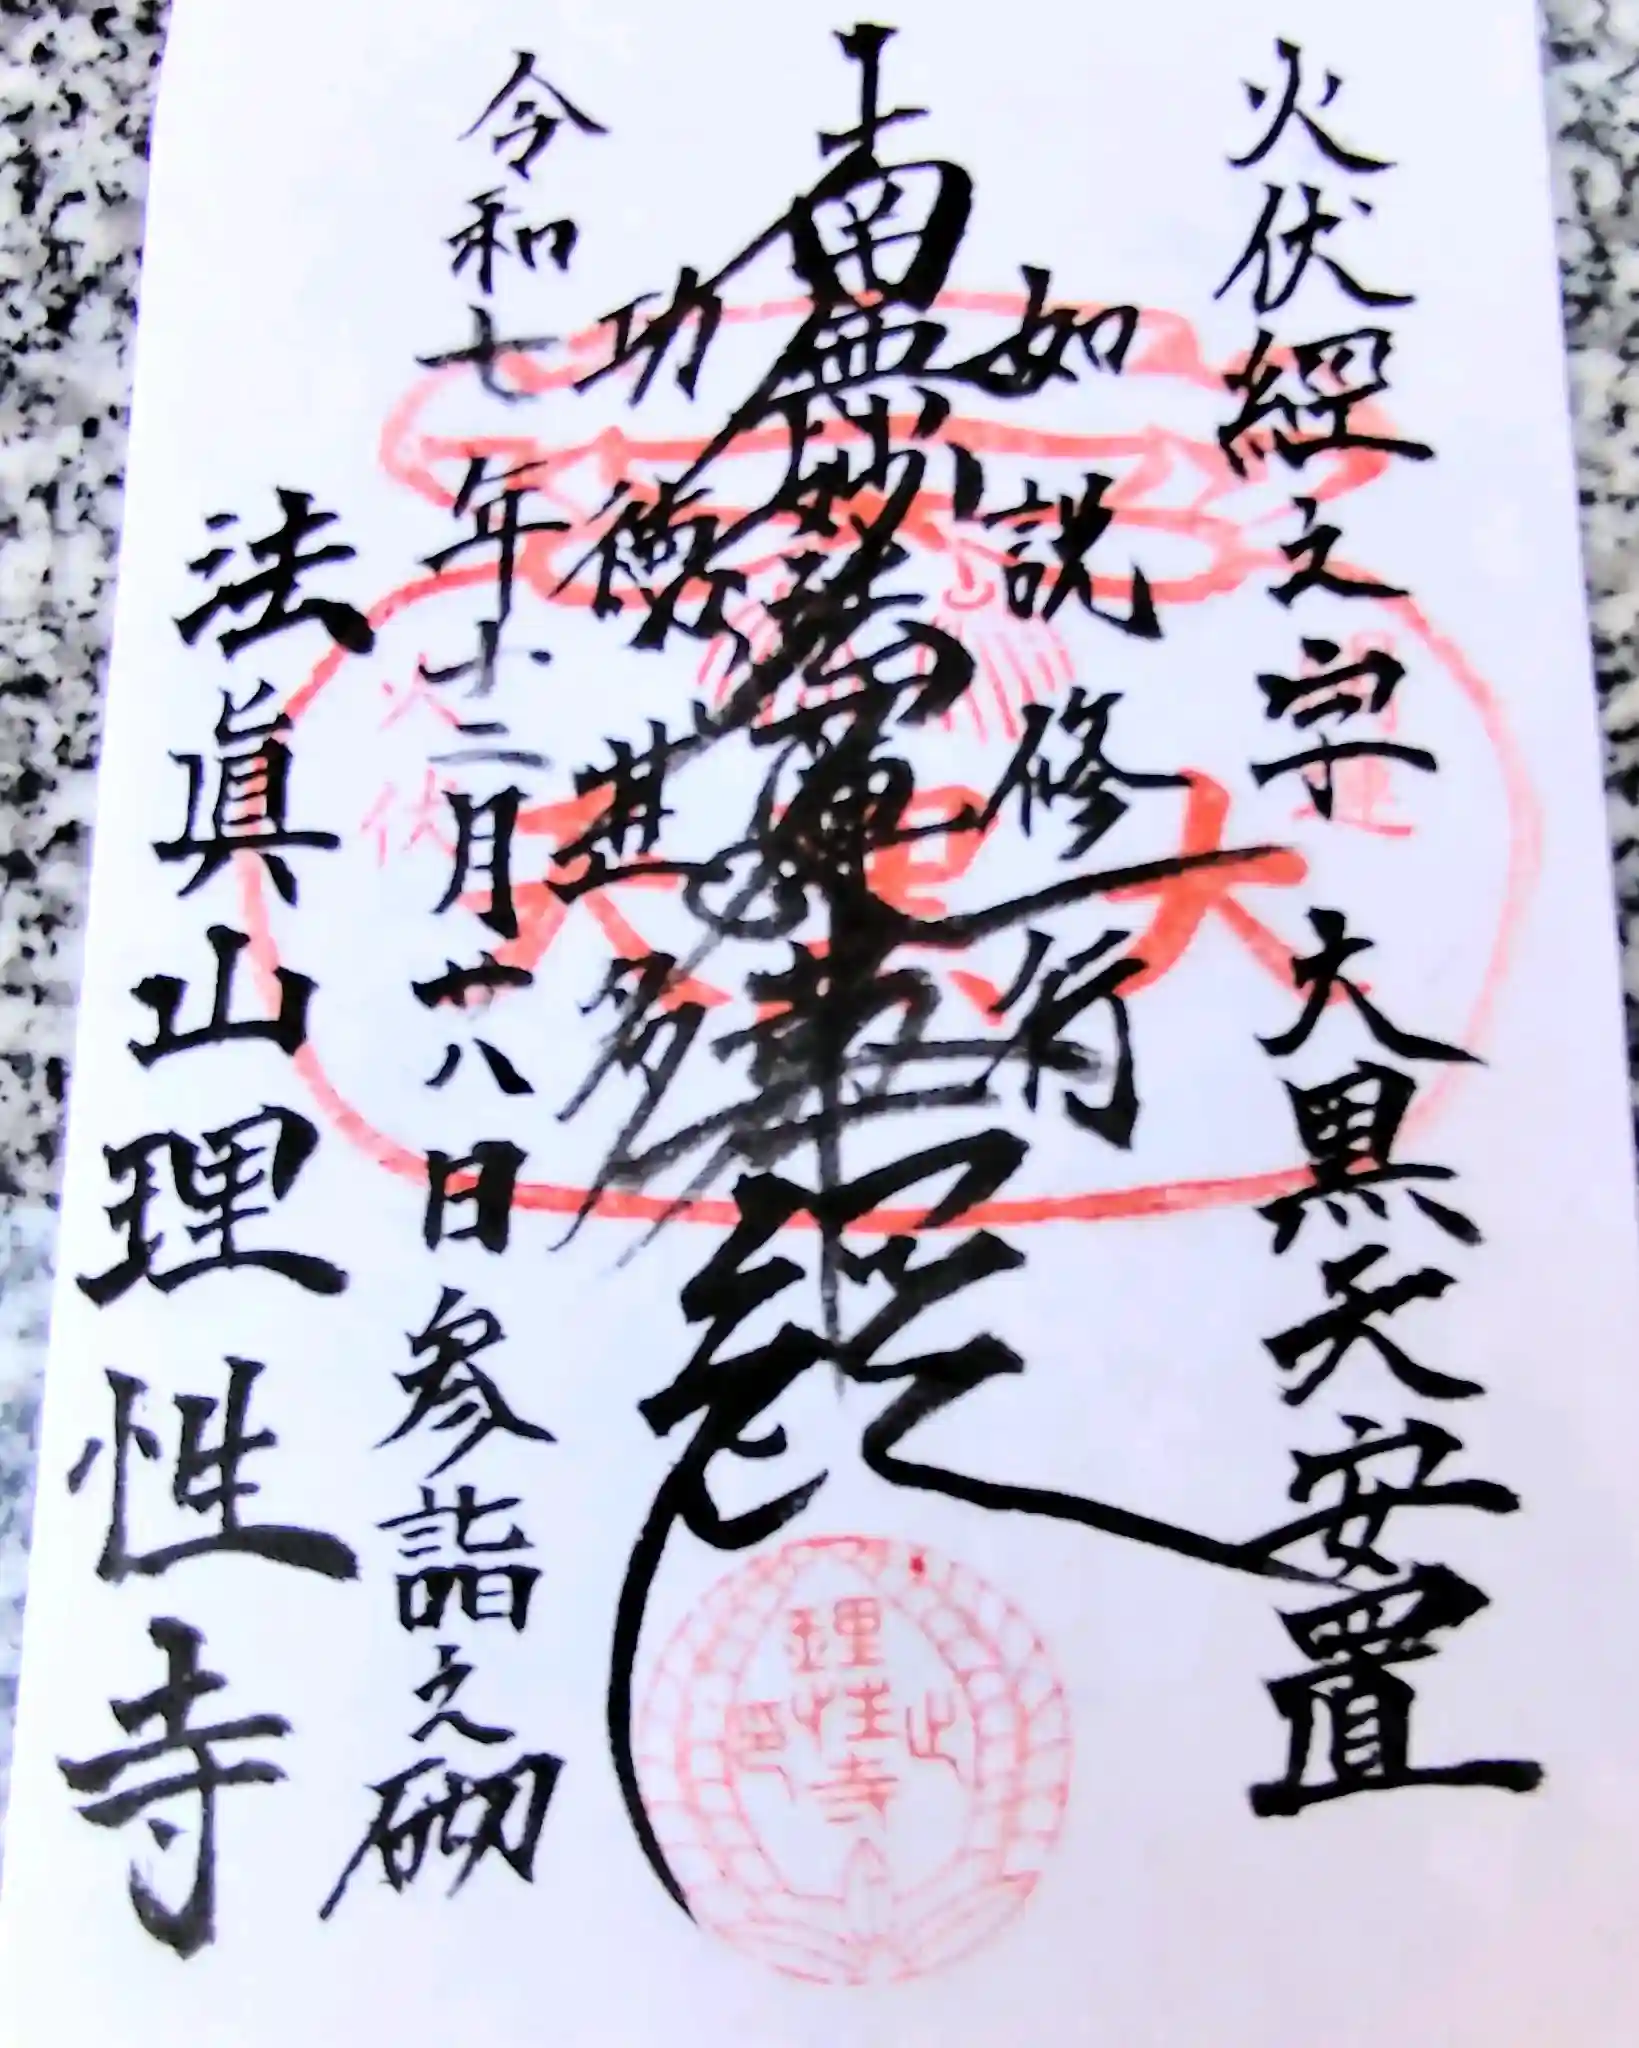 火伏經之字 大黒天安置
如説修行
南無妙法蓮華経
功徳甚多
令和七年十二月廿八日参詣之砌
法眞山理性寺
開運
大黒天
火伏
理性寺
之印